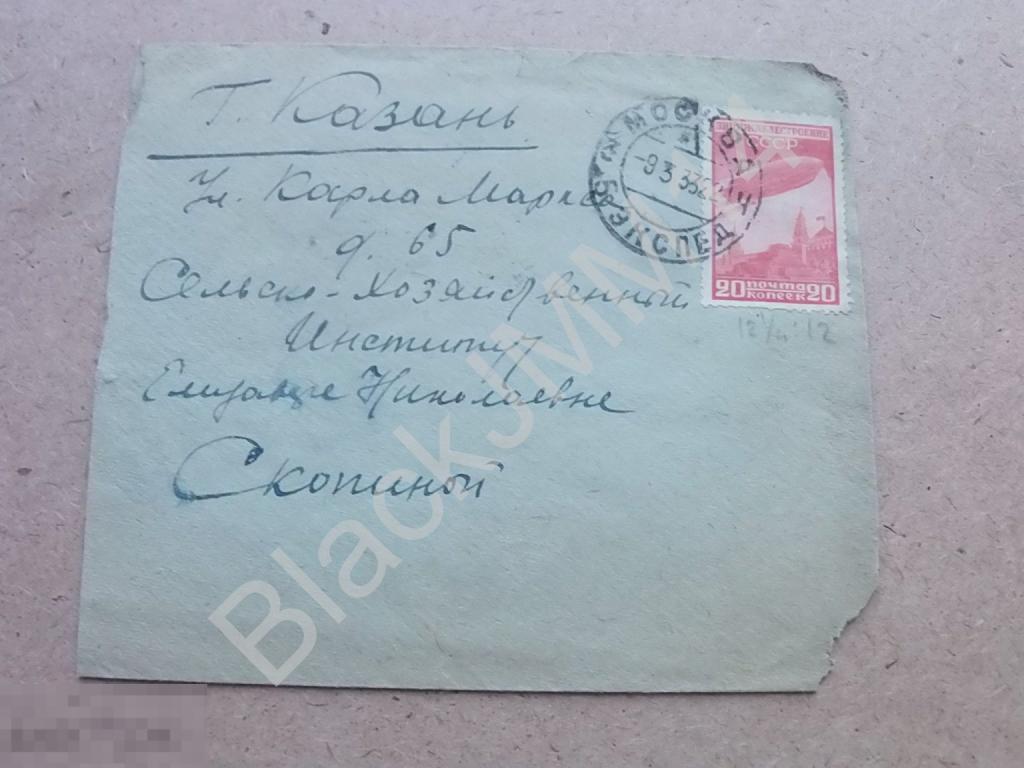 г. Казань
Ул. Карла Маркса
д. 65
Сельско-Хозяйственный
Институт
Елизавете Николаевне
Скопиной
МОСКВА
-9 3 33
ЭКСПЕД
ДИРИЖАБЛЕСТРОЕНИЕ
СССР
20 почта 20
копеек
12½:12
BlackJMM